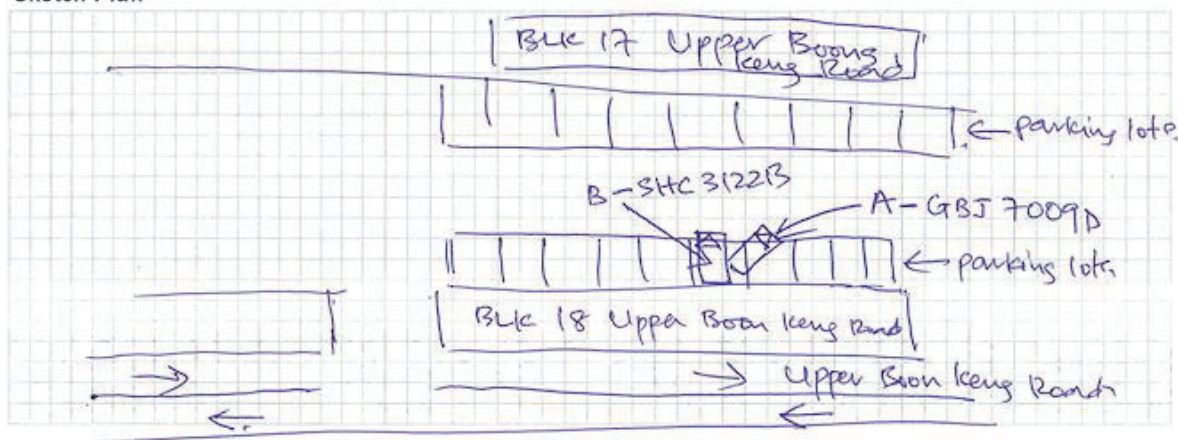 BLK 17 Upper Boong
Keng Road
← parking lots
B - SHC 3122B
A - GBJ 7009D
← parking lots
BLK 18 Upper Boon Keng Road
→ → Upper Boon Keng Road
← ←